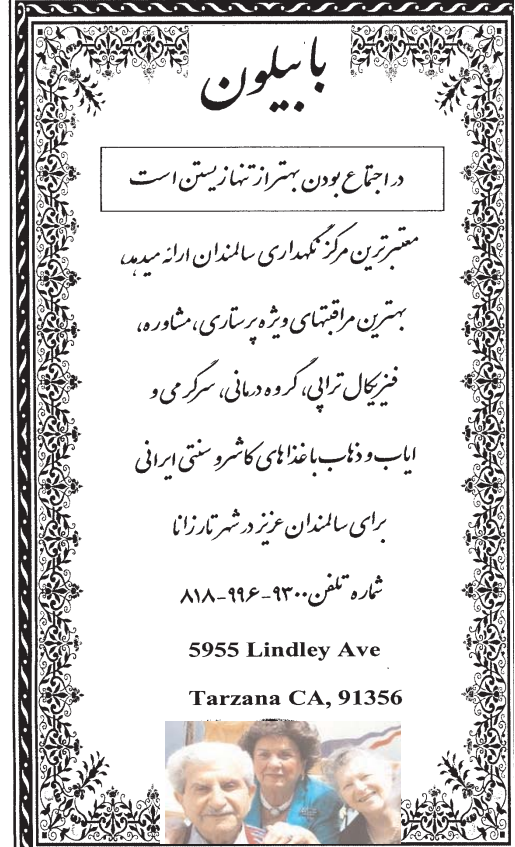 بابیلون
در اجتماع بودن بهتر از تنها زیستن است
معتبرترین مرکز نگهداری سالمندان ارائه میدهد،
بهترین مراقبتهای ویژه پرستاری، مشاوره،
فیزیکال تراپی، گروه درمانی، سرگرمی و
ایاب و ذهاب با غذاهای کاشر و سنتی ایرانی
برای سالمندان عزیز در شهر تارزانا
شماره تلفن ۹۳۰۰-۹۹۶-۸۱۸
5955 Lindley Ave
Tarzana CA, 91356